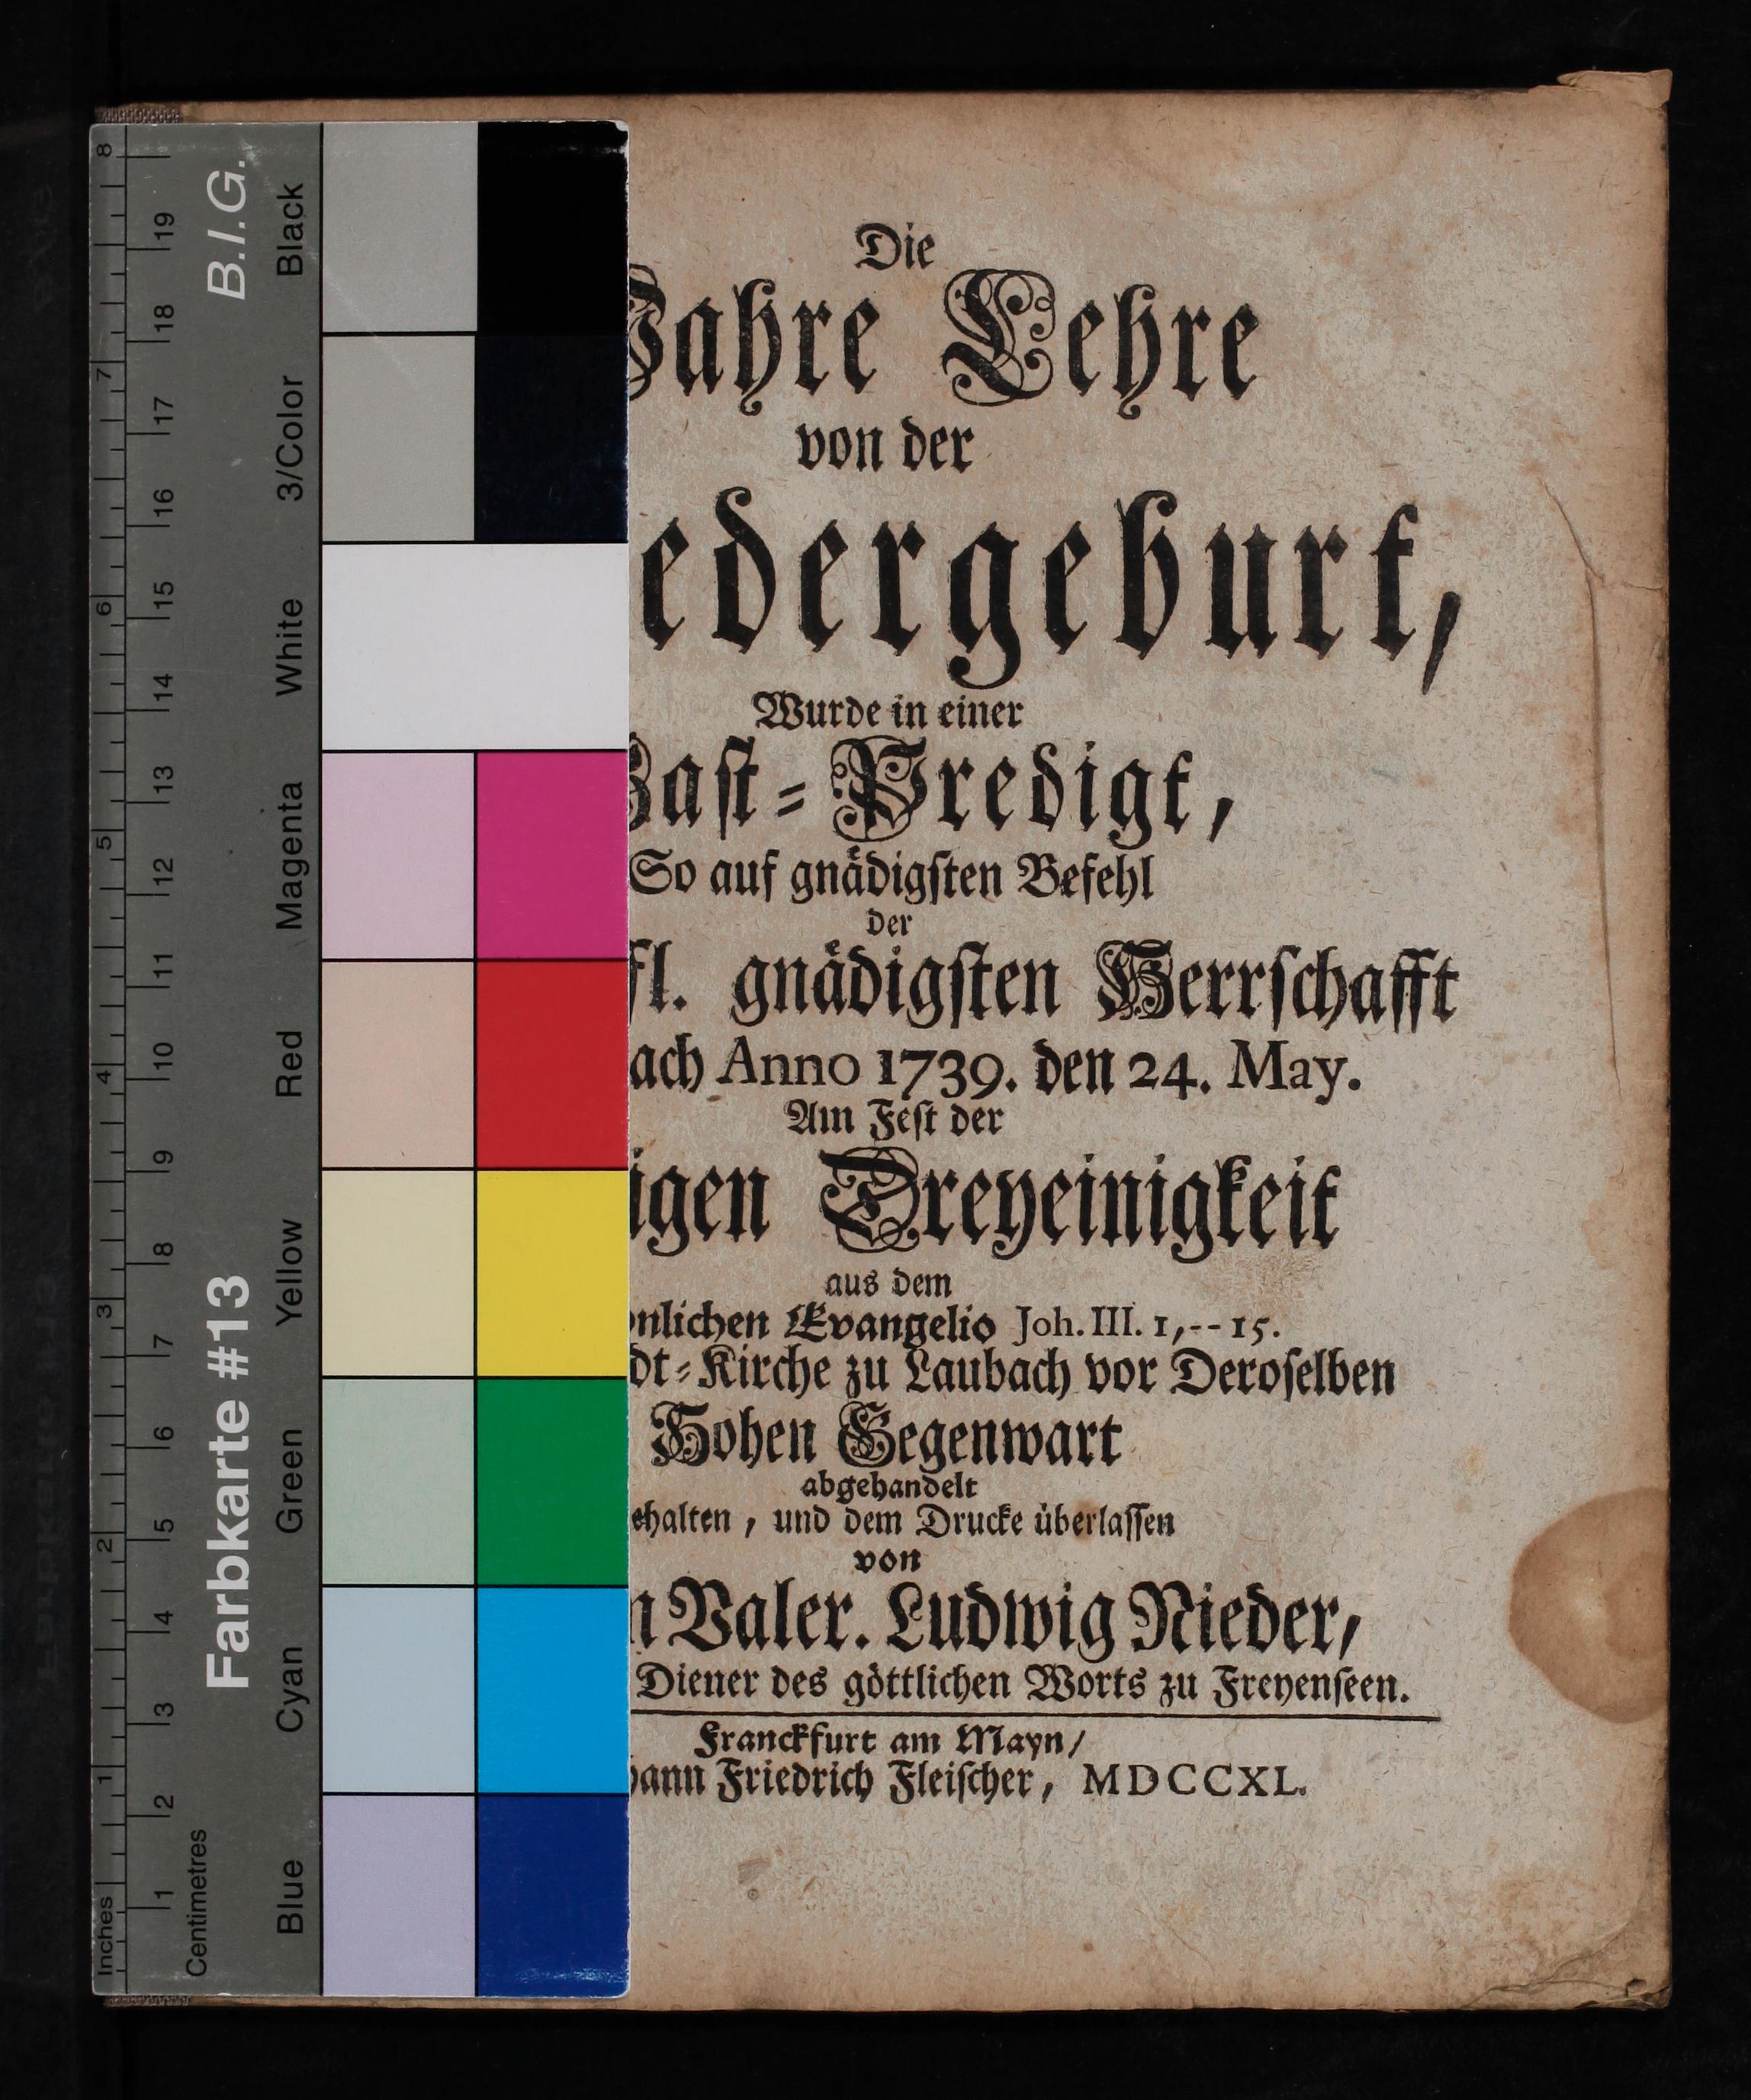 Die
ahre Lehre
von der
edergeburt,
Wurde in einer
ast-Predigt,
So auf gnädigsten Befehl
der
fl. gnädigsten Herrschafft
ach Anno 1739. den 24. May.
Am Fest der
igen Dreyeinigkeit
aus dem
nlichen Evangelio Joh. III. 1,--15.
dt-Kirche zu Laubach vor Deroselben
Hohen Gegenwart
abgehandelt
ehalten, und dem Drucke überlassen
von
n Valer. Ludwig Nieder,
Diener des göttlichen Worts zu Freyenseen.
Franckfurt am Mayn/
hann Friedrich Fleischer, MDCCXL.
Farbkarte #13
B.I.G.
Blue Cyan Green Yellow Red Magenta White 3/Color Black
Centimetres
1 2 3 4 5 6 7 8 9 10 11 12 13 14 15 16 17 18 19
Inches
1 2 3 4 5 6 7 8